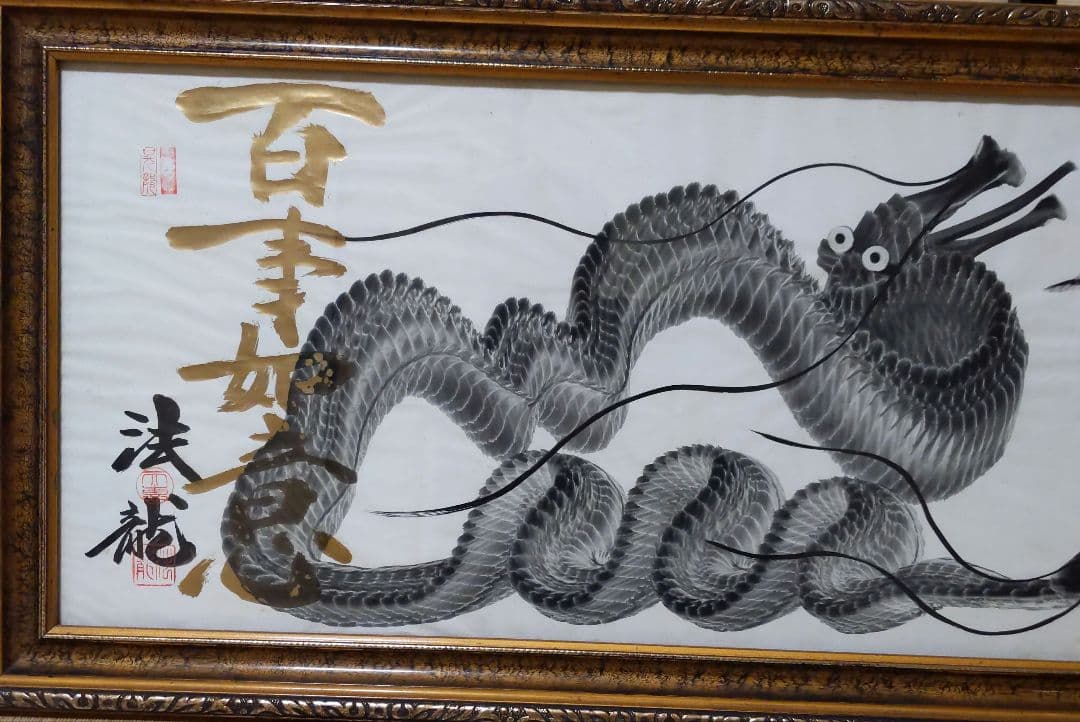 百事如意
法龍